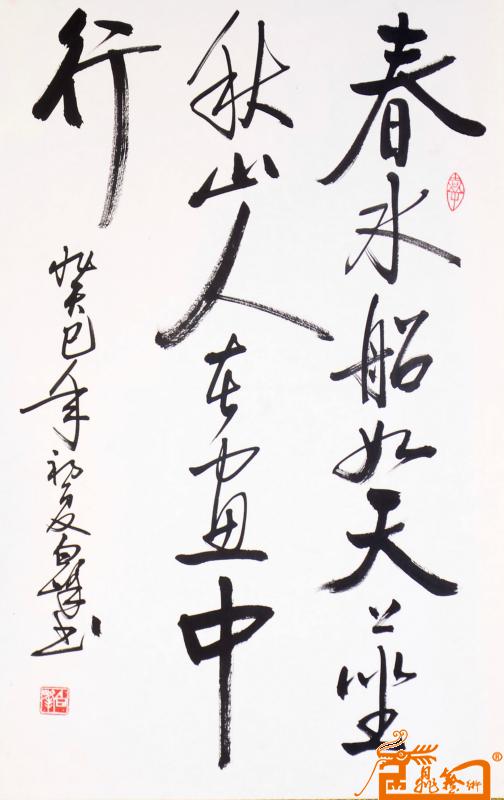 春水船如天上坐
秋山人在画中
行
癸巳年初夏白峰书